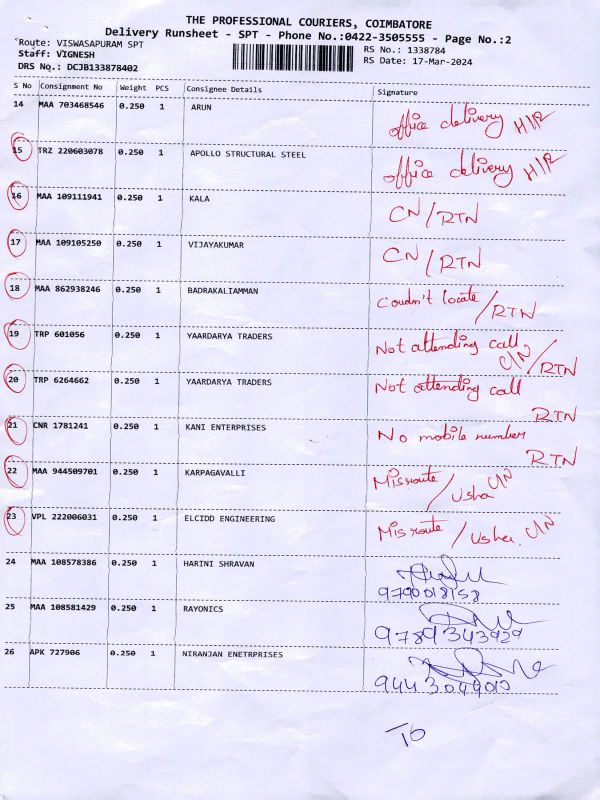 THE PROFESSIONAL COURIERS, COIMBATORE
Delivery Runsheet - SPT - Phone No.:0422-3505555 - Page No.:2
Route: VISWASAPURAM SPT RS No.: 1338784
Staff: VIGNESH RS Date: 17-Mar-2024
DRS No.: DCJB133878402
S No Consignment No Weight PCS Consignee Details Signature
14 MAA 703468546 0.250 1 ARUN office delivery
15 TRZ 220603078 0.250 1 APOLLO STRUCTURAL STEEL office delivery
16 MAA 109111941 0.250 1 KALA CN/RTN
17 MAA 109105250 0.250 1 VIJAYAKUMAR CN/RTN
18 MAA 862938246 0.250 1 BADRAKALIAMMAN Coudn't locate/RTN
19 TRP 601056 0.250 1 YAARDARYA TRADERS Not attending call CN/RTN
20 TRP 6264662 0.250 1 YAARDARYA TRADERS Not attending call
RTN
21 CNR 1781241 0.250 1 KANI ENTERPRISES No mobile number
RTN
22 MAA 944509701 0.250 1 KARPAGAVALLI Missroute/Usha CN
23 VPL 222006031 0.250 1 ELCIDD ENGINEERING Missroute/Usha. CN
24 MAA 108578386 0.250 1 HARINI SHRAVAN
9790018158
25 MAA 108581429 0.250 1 RAYONICS
9789343929
26 APK 727906 0.250 1 NIRANJAN ENETRPRISES
To